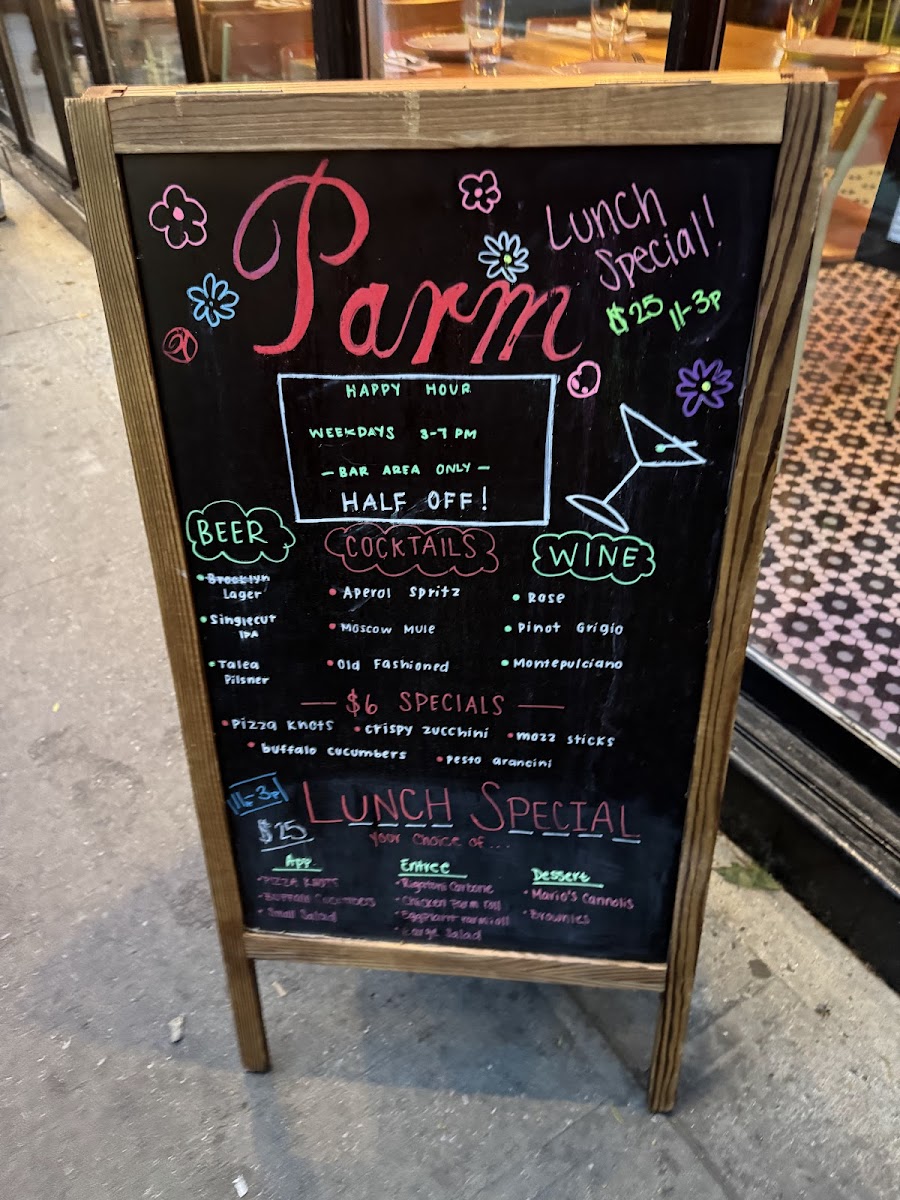 Parm
Lunch
Special!
$25 11-3P
HAPPY HOUR
WEEKDAYS 3-7 PM
- BAR AREA ONLY -
HALF OFF!
BEER
• Brooklyn
Lager
• Singlecut
IPA
• Talea
Pilsner
COCKTAILS
• Aperol Spritz
• Moscow Mule
• Old Fashioned
WINE
• Rose
• Pinot Grigio
• Montepulciano
— $6 SPECIALS —
• Pizza Knots • crispy zucchini • mozz sticks
• buffalo cucumbers • pesto arancini
11-3P
$25
LUNCH SPECIAL
Your Choice of...
App
• PIZZA KNOTS
• Buffalo Cucumbers
• Small Salad
Entree
• Rigatoni Carbone
• Chicken Parm roll
• Eggplant Parm roll
• Large Salad
Dessert
• Mario's Cannolis
• Brownies